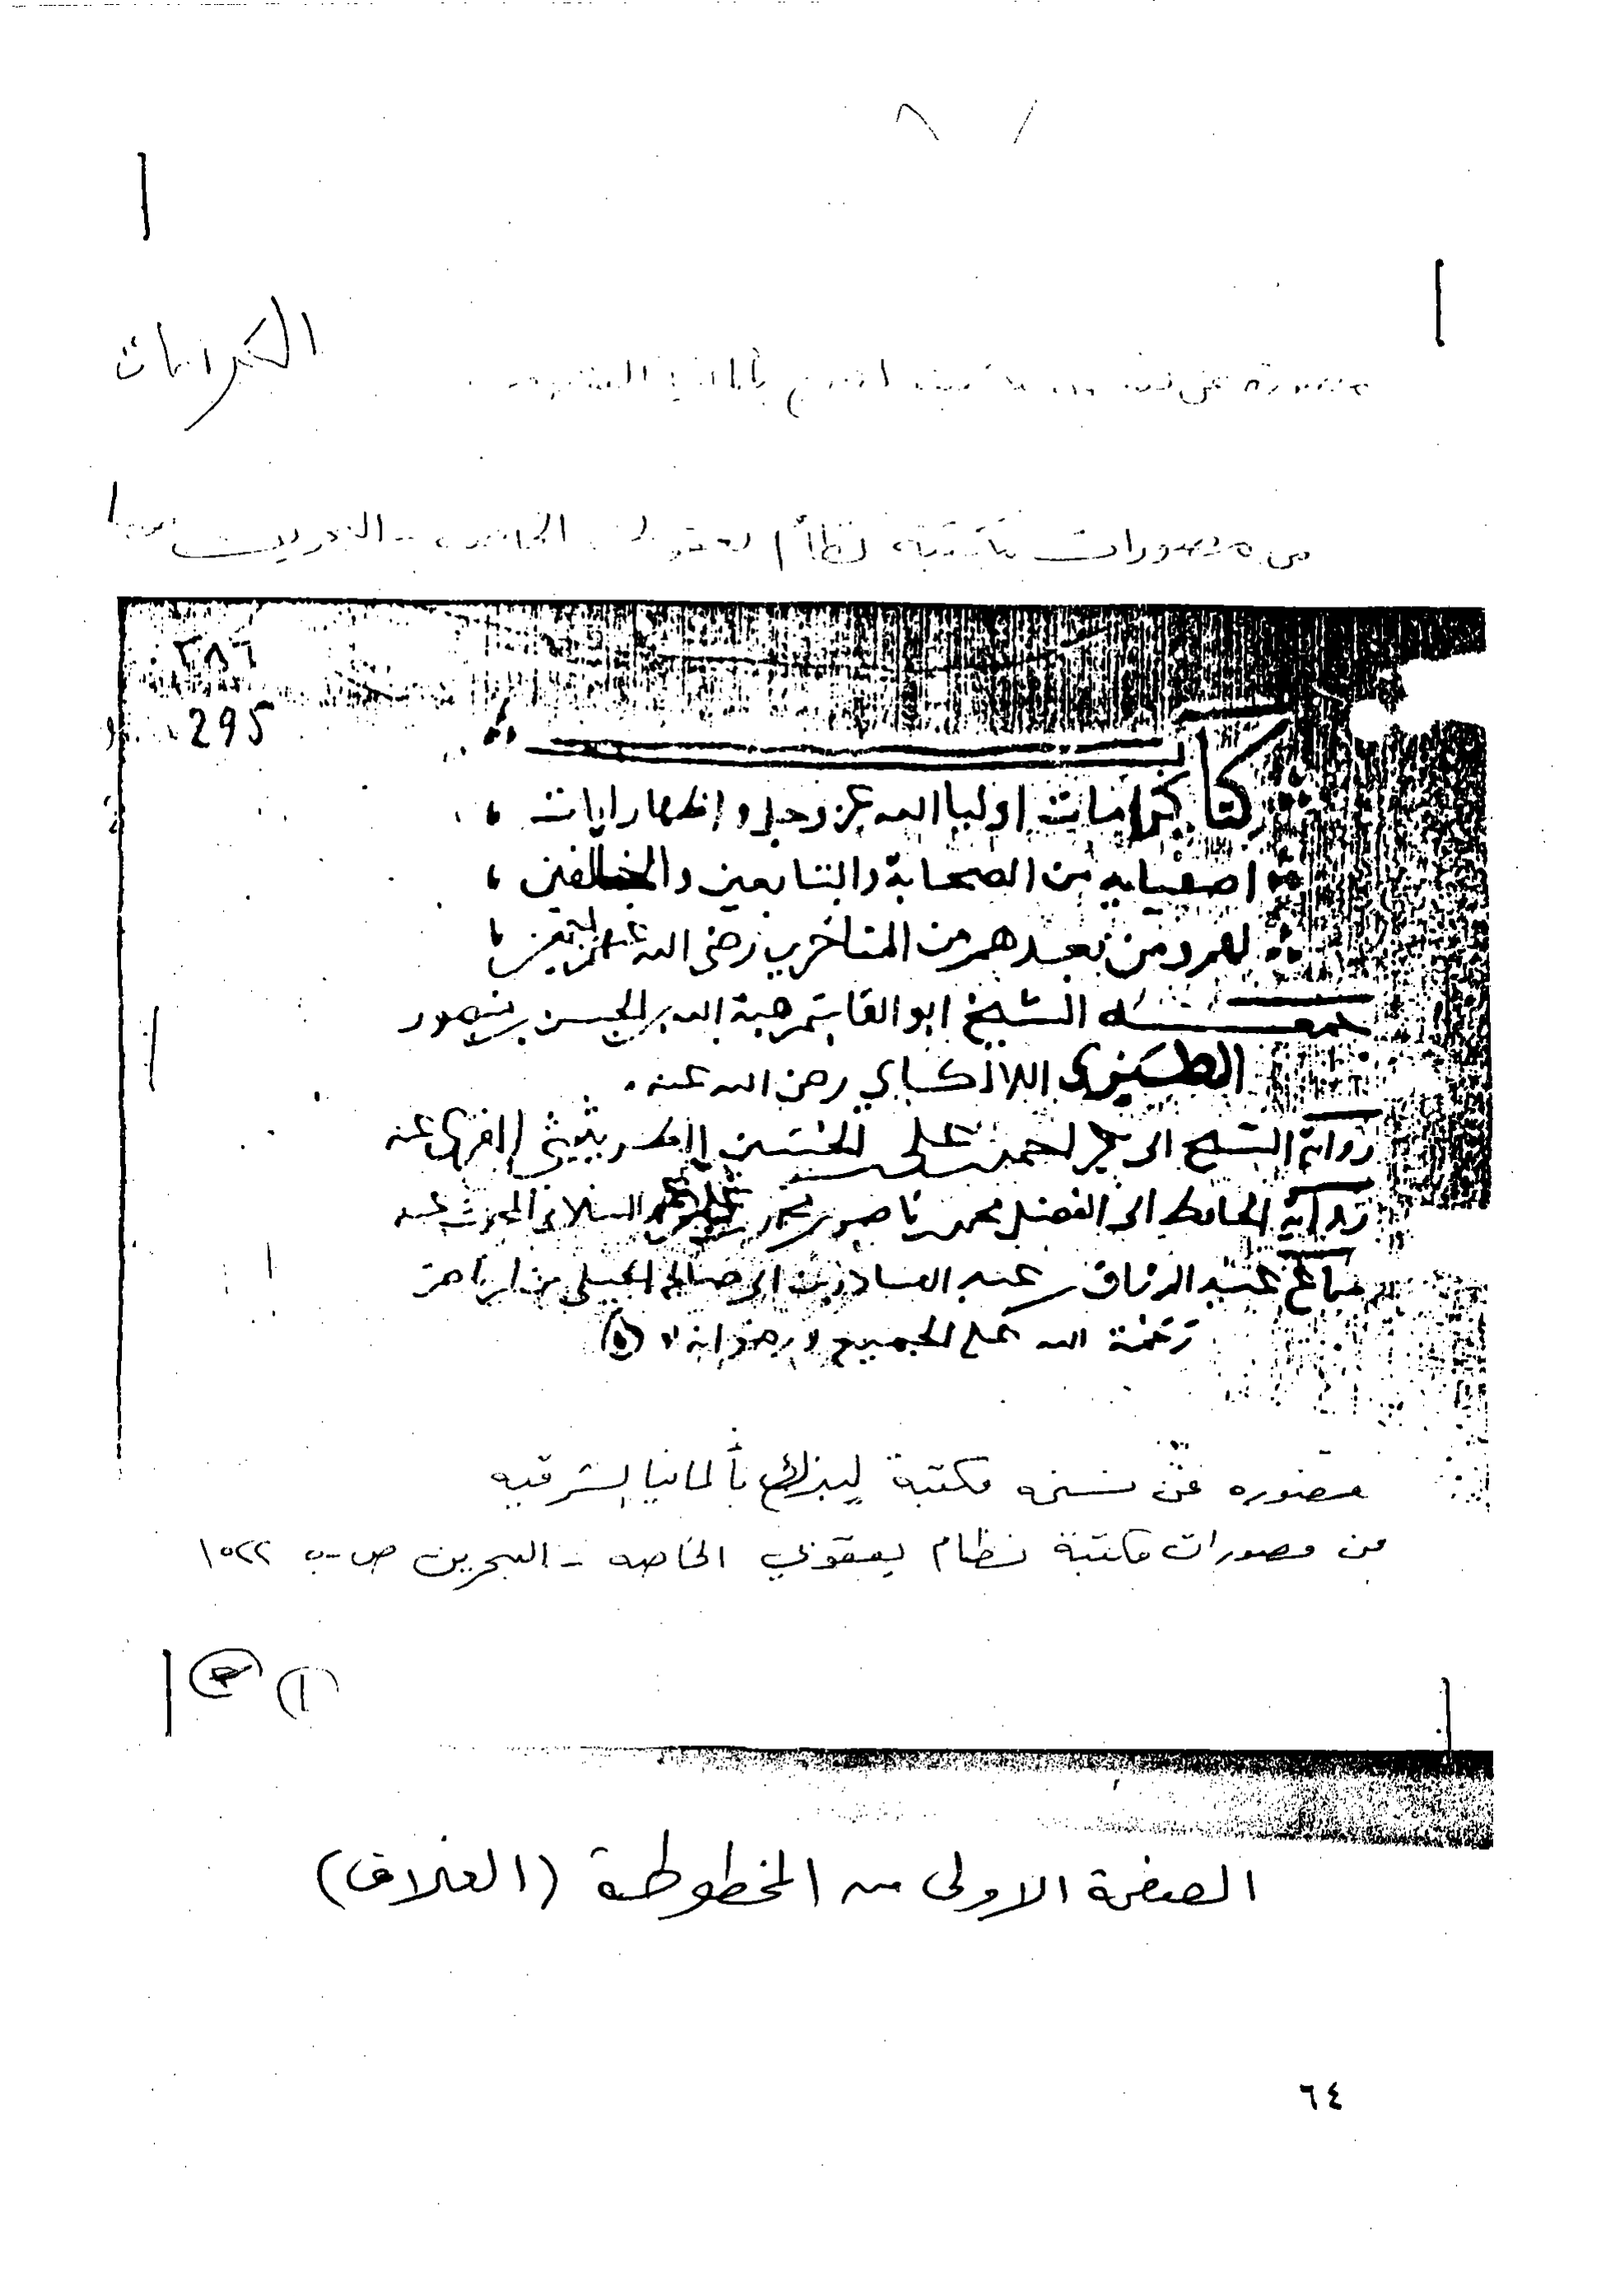 الكرامات
مصورة عن
من مصورات مكتبة نظام الخاصة - البحرين
٢٨٦
295
كتاب
كرامات اوليا الله عز وجل واظهار ايات
اصفيايه من الصحابة والتابعين والخالفين
لهم ومن بعدهم من المتاخرين رضي الله عنهم اجمعين
جمعه الشيخ ابو القاسم هبة الله بن الحسن بن منصور
الطبري اللالكاي رضي الله عنه
رواية الشيخ ابي بكر احمد بن علي بن الحسين الطريثيثي المقري عنه
رواية الحافظ ابي الفضل محمد بن ناصر بن محمد بن علي السلامي عنه
سماع عبد الرزاق بن عبد القادر بن ابي صالح الجيلي من ابن ناصر
رحمة الله على الجميع ورضوانه
مصوره عن نسخه مكتبة ليبزك بألمانيا الشرقيه
من مصورات مكتبة نظام يعقوبي الخاصه - البحرين ص-ب ١٥٢٢
(١)
الصفحة الاولى من المخطوطة (الغلاف)
٦٤